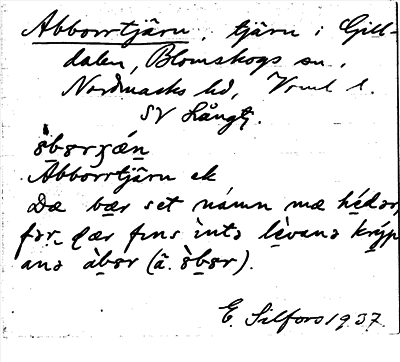 Abborrtjärn, tjärn i Gill-
dalen, Blomskogs sn.,
Nordmarks hd, Vrml l.
SV Långtj.
ȯbɞrʒǽṉ
Abborrtjärn ek
Dæ bær set námn mæ hédər,
fər dær fins ìntə lèvanə krýp
anə àbɞr (ä. òbɞr).
E. Silfors 1937